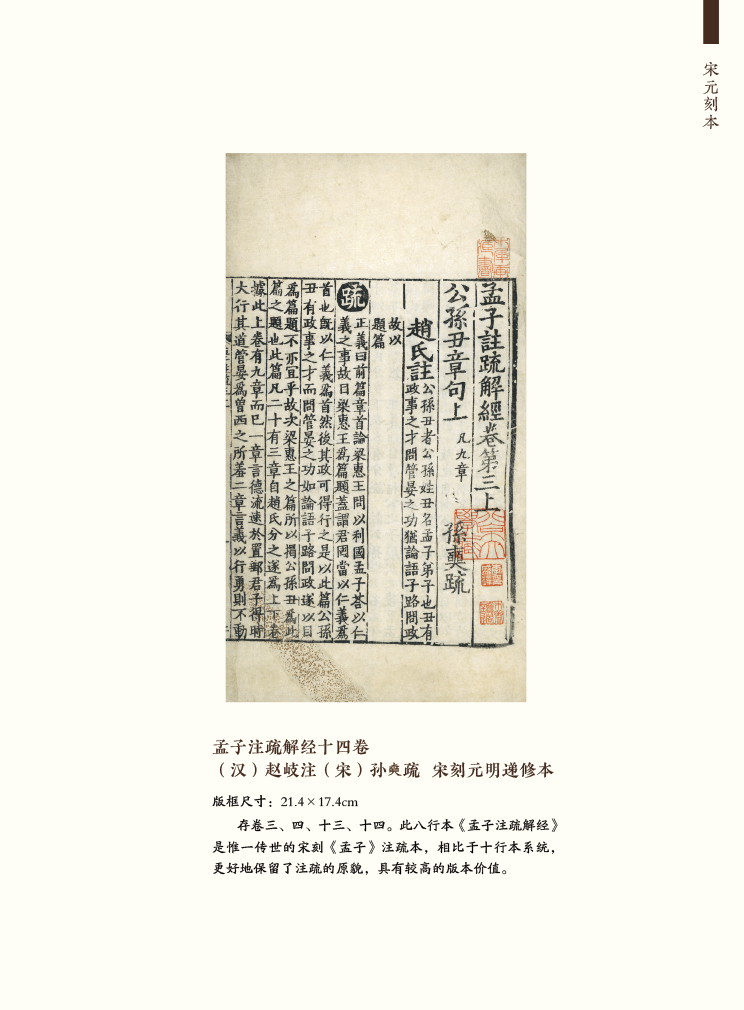 宋元刻本
孟子註疏解經卷第三上
公孫丑章句上 凡九章 孫奭疏
趙氏註
公孫丑者公孫姓丑名孟子弟子也丑有
政事之才問管晏之功猶論語子路問政
故以
題篇
疏
正義曰前篇章首論梁惠王問以利國孟子荅以仁
義之事故目梁惠王為篇題蓋謂君罔當以仁義為
首也旣以仁義為首然後其政可得行之是以此篇公孫
丑有政事之才而問管晏之功如論語子路問政遂以目
為篇題不亦宜乎故次梁惠王之篇所以揭公孫丑為此
篇之題也此篇凡二十有三章自趙氏分之遂為上下卷
據此上卷有九章而已一章言德流速於置郵君子得時
大行其道管晏為曾西之所羞二章言義以行勇則不動
孟子注疏解经十四卷
（汉）赵岐注（宋）孙奭疏 宋刻元明递修本
版框尺寸：21.4×17.4cm
存卷三、四、十三、十四。此八行本《孟子注疏解经》
是惟一传世的宋刻《孟子》注疏本，相比于十行本系统，
更好地保留了注疏的原貌，具有较高的版本价值。